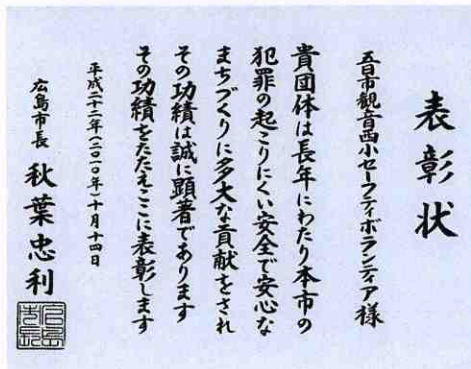 表彰状
五日市観音西小セーフティボランティア様
貴団体は長年にわたり本市の
犯罪の起こりにくい安全で安心な
まちづくりに多大な貢献をされ
その功績は誠に顕著であります
その功績をたたえここに表彰します
平成二十二年(二〇一〇年)十月十四日
広島市長 秋葉忠利